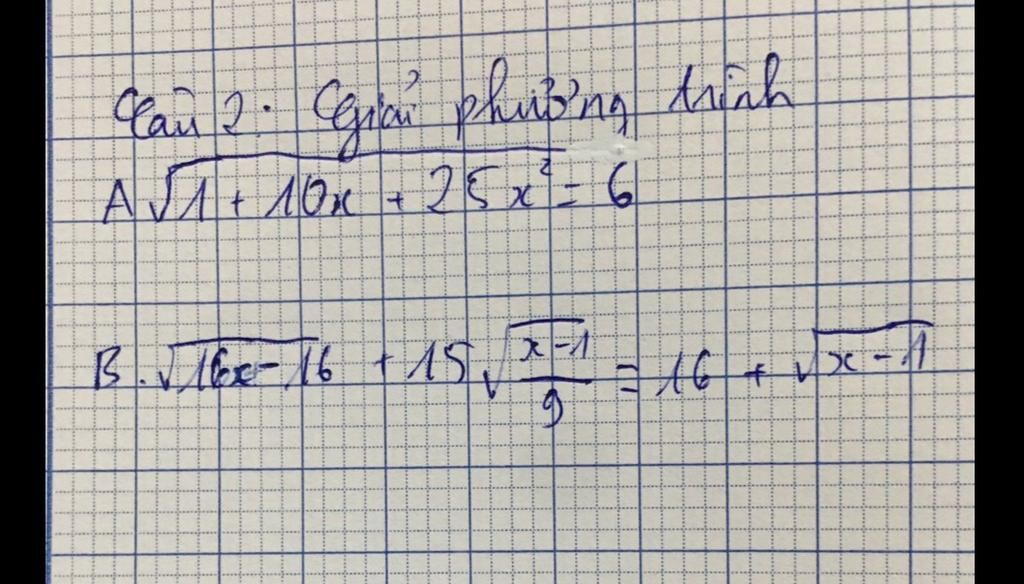 Câu 2: Giải phương trình
A √1 + 10x + 25x² = 6
B. √16x - 16 + 15 √x - 1/9 = 16 + √x - 1